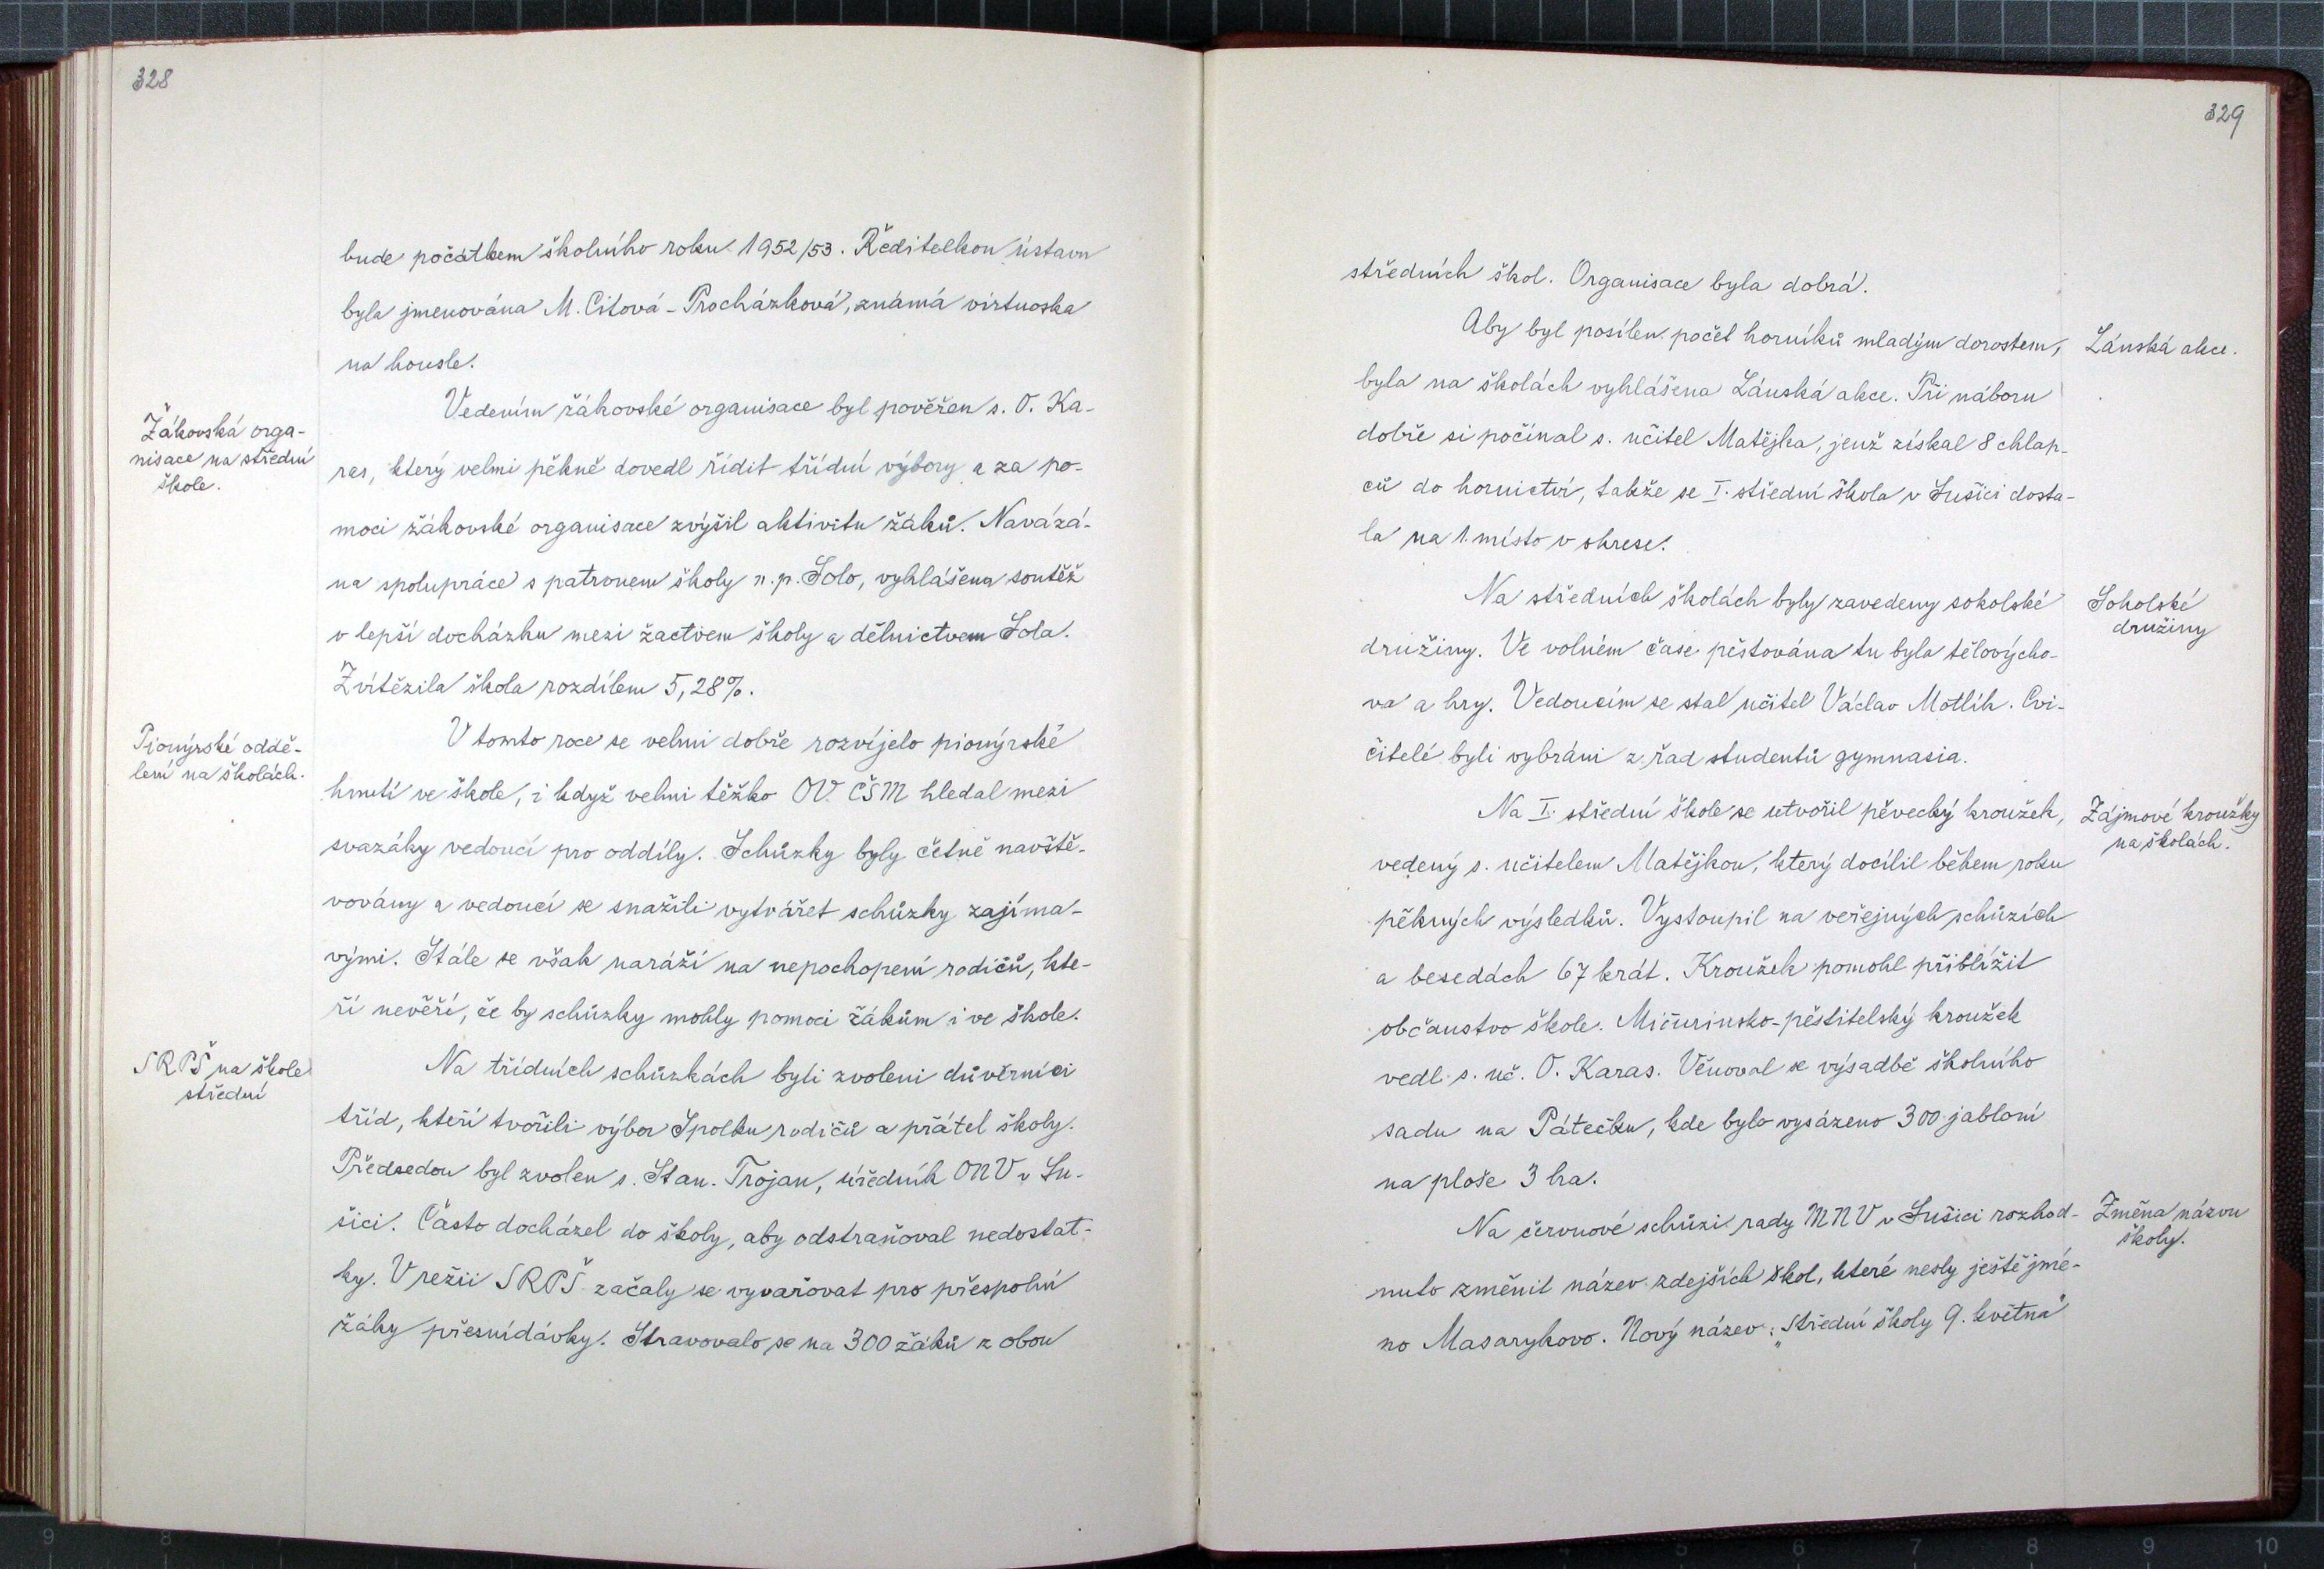 328
bude počátkem školního roku 1952/53. Ředitelkou ústavu
byla jmenována M. Citová-Procházková, známá virtuoska
na housle.
Žákovská orga-
nisace na střední
škole.
Vedením žákovské organisace byl pověřen s. O. Ka-
ras, který velmi pěkně dovedl řídit třídní výbory a za po-
moci žákovské organisace zvýšil aktivitu žáků. Navázá-
na spolupráce s patronem školy n. p. Solo, vyhlášena soutěž
v lepší docházku mezi žactvem školy a dělnictvem Sola.
Zvítězila škola rozdílem 5,28%.
Pionýrské oddě-
lení na školách.
V tomto roce se velmi dobře rozvíjelo pionýrské
hnutí ve škole, i když velmi těžko OV ČSM hledal mezi
svazáky vedoucí pro oddíly. Schůzky byly četně navště-
vovány a vedoucí se snažili vytvářet schůzky zajíma-
vými. Stále se však naráží na nepochopení rodičů, kte-
ří nevěří, že by schůzky mohly pomoci žákům i ve škole.
SRPŠ na škole
střední
Na třídních schůzkách byli zvoleni důvěrníci
tříd, kteří tvořili výbor Spolku rodičů a přátel školy.
Předsedou byl zvolen s. Stan. Trojan, úředník ONV v Su-
šici. Často docházel do školy, aby odstraňoval nedostat-
ky. V režii SRPŠ začaly se vyvařovat pro přespolní
žáky přesnídávky. Stravovalo se na 300 žáků z obou
329
středních škol. Organisace byla dobrá.
Aby byl posílen počet horníků mladým dorostem,
Lánská akce.
byla na školách vyhlášena Lánská akce. Při náboru
dobře si počínal s. učitel Matějka, jenž získal 8 chlap-
ců do hornictví, takže se I. střední škola v Sušici dosta-
la na 1. místo v okrese.
Na středních školách byly zavedeny sokolské
Sokolské
družiny
družiny. Ve volném čase pěstována tu byla tělovýcho-
va a hry. Vedoucím se stal učitel Václav Motlík. Cvi-
čitelé byli vybráni z řad studentů gymnasia.
Na I. střední škole se utvořil pěvecký kroužek,
Zájmové kroužky
na školách.
vedený s. učitelem Matějkou, který docílil během roku
pěkných výsledků. Vystoupil na veřejných schůzích
a besedách 67 krát. Kroužek pomohl přiblížit
občanstvo škole. Mičurinsko-pěstitelský kroužek
vedl s. uč. O. Karas. Věnoval se výsadbě školního
sadu na Pátečku, kde bylo vysázeno 300 jabloní
na ploše 3 ha.
Na červnové schůzi rady MNV v Sušici rozhod-
Změna názvu
školy.
nuto změnit název zdejších škol, které nesly ještě jmé-
no Masarykovo. Nový název: „Střední školy 9. května"